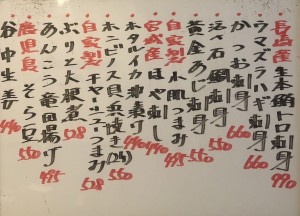 長崎産生本鮪トロ刺身 990
ウマズラハギ刺身 660
かつお刺身 660
活〆石鯛刺身 550
黄金あじ刺身 495
自家製小肌つまみ
宮城産ほや刺 440
ホタルイカ沖漬け 440
ホンビノス貝浜焼き(2ヶ) 550
自家製チャーシューつまみ 528
ぶり大根煮 528
あんこう竜田揚げ 495
鹿児島そら豆 550
谷中生姜 440